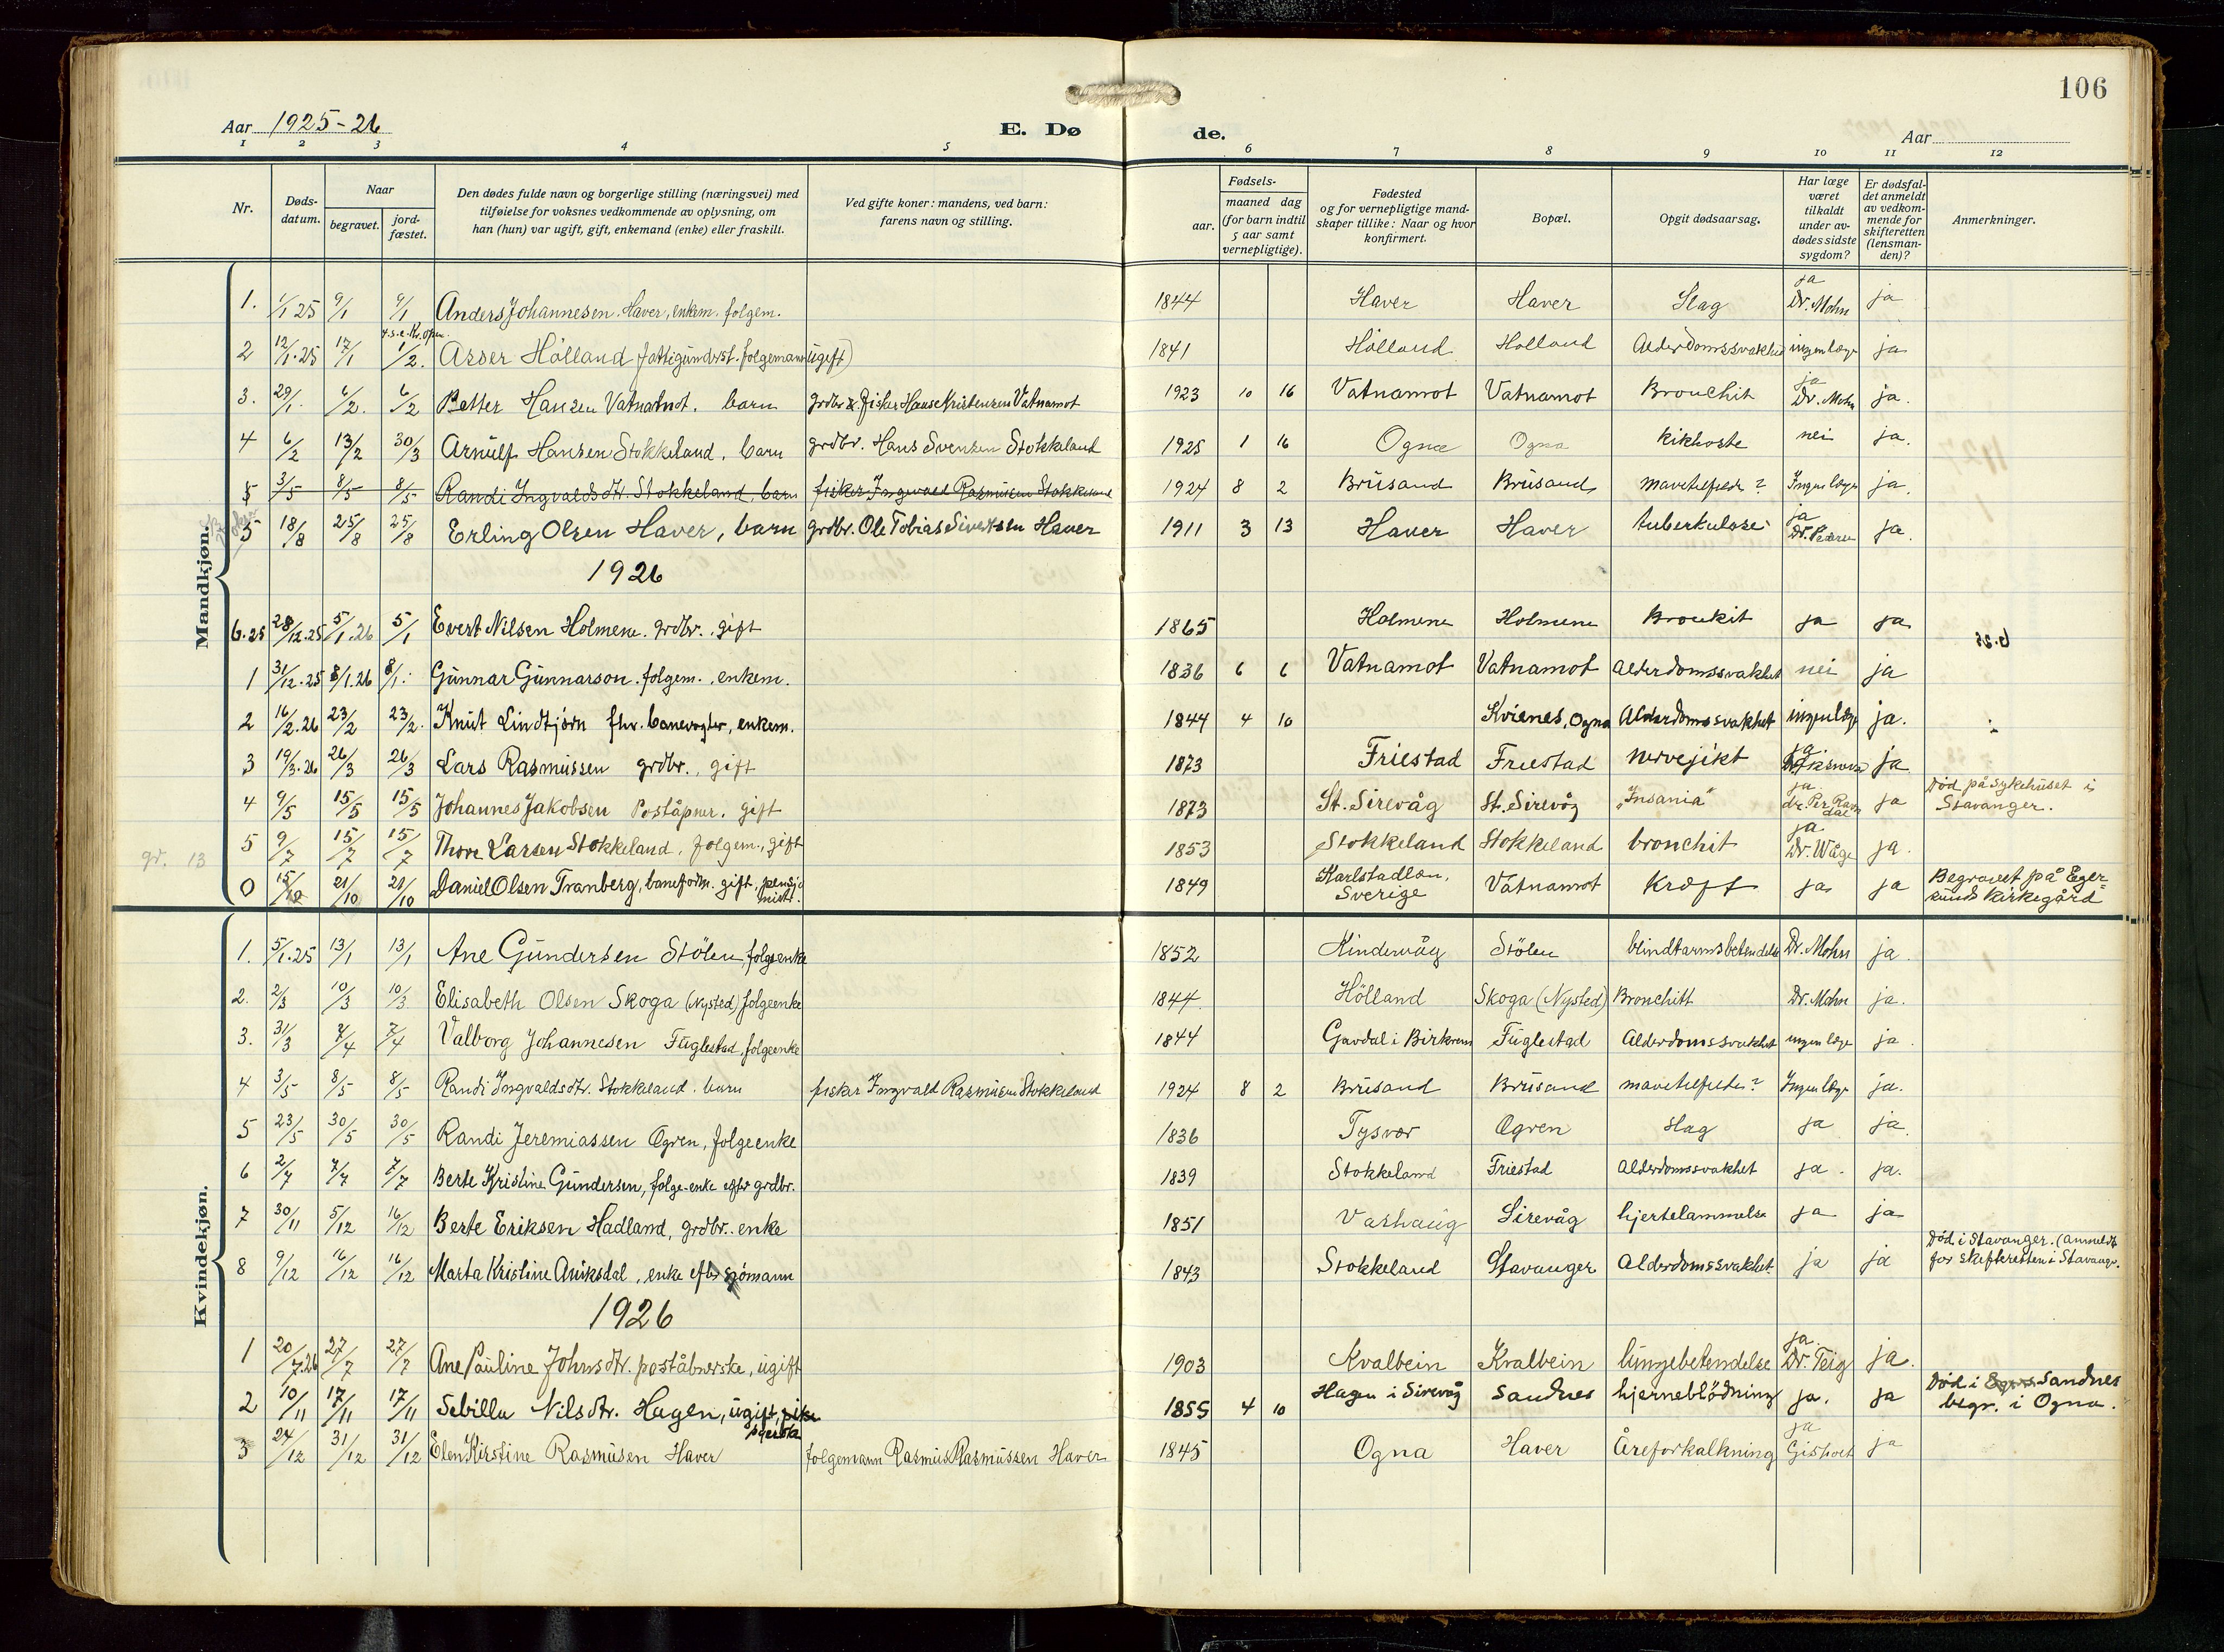 106
Aar 1925-26
E. Dø
de.
Aar
1 2 3 4 5 6 7 8 9 10 11 12
Nr.
Døds-
datum.
Naar
begravet.
jord-
fæstet.
Den dødes fulde navn og borgerlige stilling (næringsvei) med
tilføielse for voksnes vedkommende av oplysning, om
han (hun) var ugift, gift, enkemand (enke) eller fraskilt.
Ved gifte koner: mandens, ved barn:
farens navn og stilling.
Fødsels-
aar.
maaned dag
(for barn indtil
5 aar samt
vernepligtige).
Fødested
og for vernepligtige mand-
skaper tillike: Naar og hvor
konfirmert.
Bopæl.
Opgit dødsaarsag.
Har læge
været
tilkaldt
under av-
dødes sidste
sygdom?
Er dødsfal-
det anmeldt
av vedkom-
mende for
skifteretten
(lensman-
den)?
Anmerkninger.
Mandkjøn.
1. 1/1 25 9/1 9/1 Anders Johannesen Haver, enkem. folgem. 1844 Haver Haver Slag ja Dr. Mohn ja
2 12/1.25 17/1 1/2. Asser Hölland fattigunderst. folgemann (ugift) 1841 Hölland Hölland Alderdomssvakhet ingen læge ja
3. 29/1. 6/2. 6/2 Petter Hansen Vatnamot. barn grdbr & fisker Hans Kristensen Vatnamot 1923 10 16 Vatnamot Vatnamot Bronchit ja Dr. Mohn ja.
4 6/2 13/2 30/3 Arnulf Hansen Stokkeland, barn grdbr. Hans Svensen Stokkeland 1925 1 16 Ogna Ogna Kikhoste nei ja.
5 3/5 8/5 8/5 Randi Ingvaldsdtr. Stokkeland, barn fisker Ingvald Rasmusen Stokkeland 1924 8 2 Brusand Brusand mavetilfelde? Ingen læge ja.
5 18/8 25/8 25/8 Erling Olsen Haver, barn grdbr. Ole Tobias Sivertsen Haver 1911 3 13 Haver Haver tuberkulose ja ja.
1926
6.25 28/12.25 5/1.26 5/1 Evert Nilsen Holmene. grdbr., gift 1865 Holmene Holmene Bronkit ja ja
1 31/12.25 8/1.26 8/1. Gunnar Gunnarson. folgem., enkem. 1836 6 6 Vatnamot Vatnamot Alderdomssvakhet nei ja
2 16/2.26 23/2 23/2. Knut Lindtjørn fhv. banevogter, enkem. 1844 4 10 Kvienes, Ogna Alderdomssvakhet ingen læge ja.
3 19/3.26 26/3 26/3 Lars Rasmussen grdbr., gift 1873 Friestad Friestad nervejikt ja ja
4 9/5 15/5 15/5 Johannes Jakobsen Poståpner. gift 1873 St. Sirevåg St. Sirevåg „Insania" ja ja Död på Sykehuset i
Stavanger.
5 9/7 15/7 15/7 Thore Larsen Stokkeland, folgem., gift 1853 Stokkeland Stokkeland bronchit ja Dr. Wåge ja.
gr. 13
0 15/10 21/10 21/10 Daniel Olsen Tranberg, baneform. gift, 1849 Karlstadlän, Sverige Vatnamot Kræft ja ja Begravet på Eger-
sunds Kirkegård
Kvindekjøn.
1. 5/1.25 13/1 13/1 Ane Gundersen Stölen, folgeenke 1852 Kindervåg Stölen blindtarmsbetendelse Dr. Mohn ja.
2. 2/3 10/3 10/3 Elisabeth Olsen Skoga (Nysted) folgeenke 1844. Hölland Skoga (Nysted) Bronchitt Dr. Mohn ja.
3. 31/3 7/4 7/4 Valborg Johannesen Fuglestad, folgeenke 1844 Gavdal i Birkrem Fuglestad Alderdomssvakhet ingen læge ja.
4 3/5 8/5 8/5 Randi Ingvaldsdtr. Stokkeland. barn fisker Ingvald Rasmusen Stokkeland 1924 8 2 Brusand Brusand mavetilfelde? Ingen læge ja.
5 23/5 30/5 30/5 Randi Jeremiassen Ogren, folgeenke 1836 Tysvær Ogren Slag ja ja.
6 2/7 7/7 7/7 Berte Kristine Gundersen, folge-enke efter grdbr. 1839 Stokkeland Friestad Alderdomssvakhet ja. ja.
7 30/11 5/12 16/12 Berte Eriksen Hadland, grdbr. enke 1851 Varhaug Sirevåg hjertelammelse ja ja
8 9/12 16/12 16/12 Marta Kristine Auksdal, enke efter sjömann 1843 Stokkeland Stavanger Alderdomssvakhet ja ja Död i Stavanger. (anmeldt
for skifteretten i Stavanger.
1926
1 20/7.26 27/7 27/7 Ane Pauline Johnsdtr. poståbnerske, ugift 1903 Kvalbein Kvalbein lungebetendelse ja Dr. Teig ja.
2 10/11 17/11 17/11 Sebilla Nilsdtr. Hagen, ugift, 1855 4 10 Hagen i Sirevåg Sandnes hjerneblödning ja. ja Död i Sandnes
begr. i Ogna.
3 24/12 31/12 31/12 Elen Kirstine Rasmusen Haver folgemann Rasmus Rasmussen Haver 1845 Ogna Haver Åreforkalkning ja ja